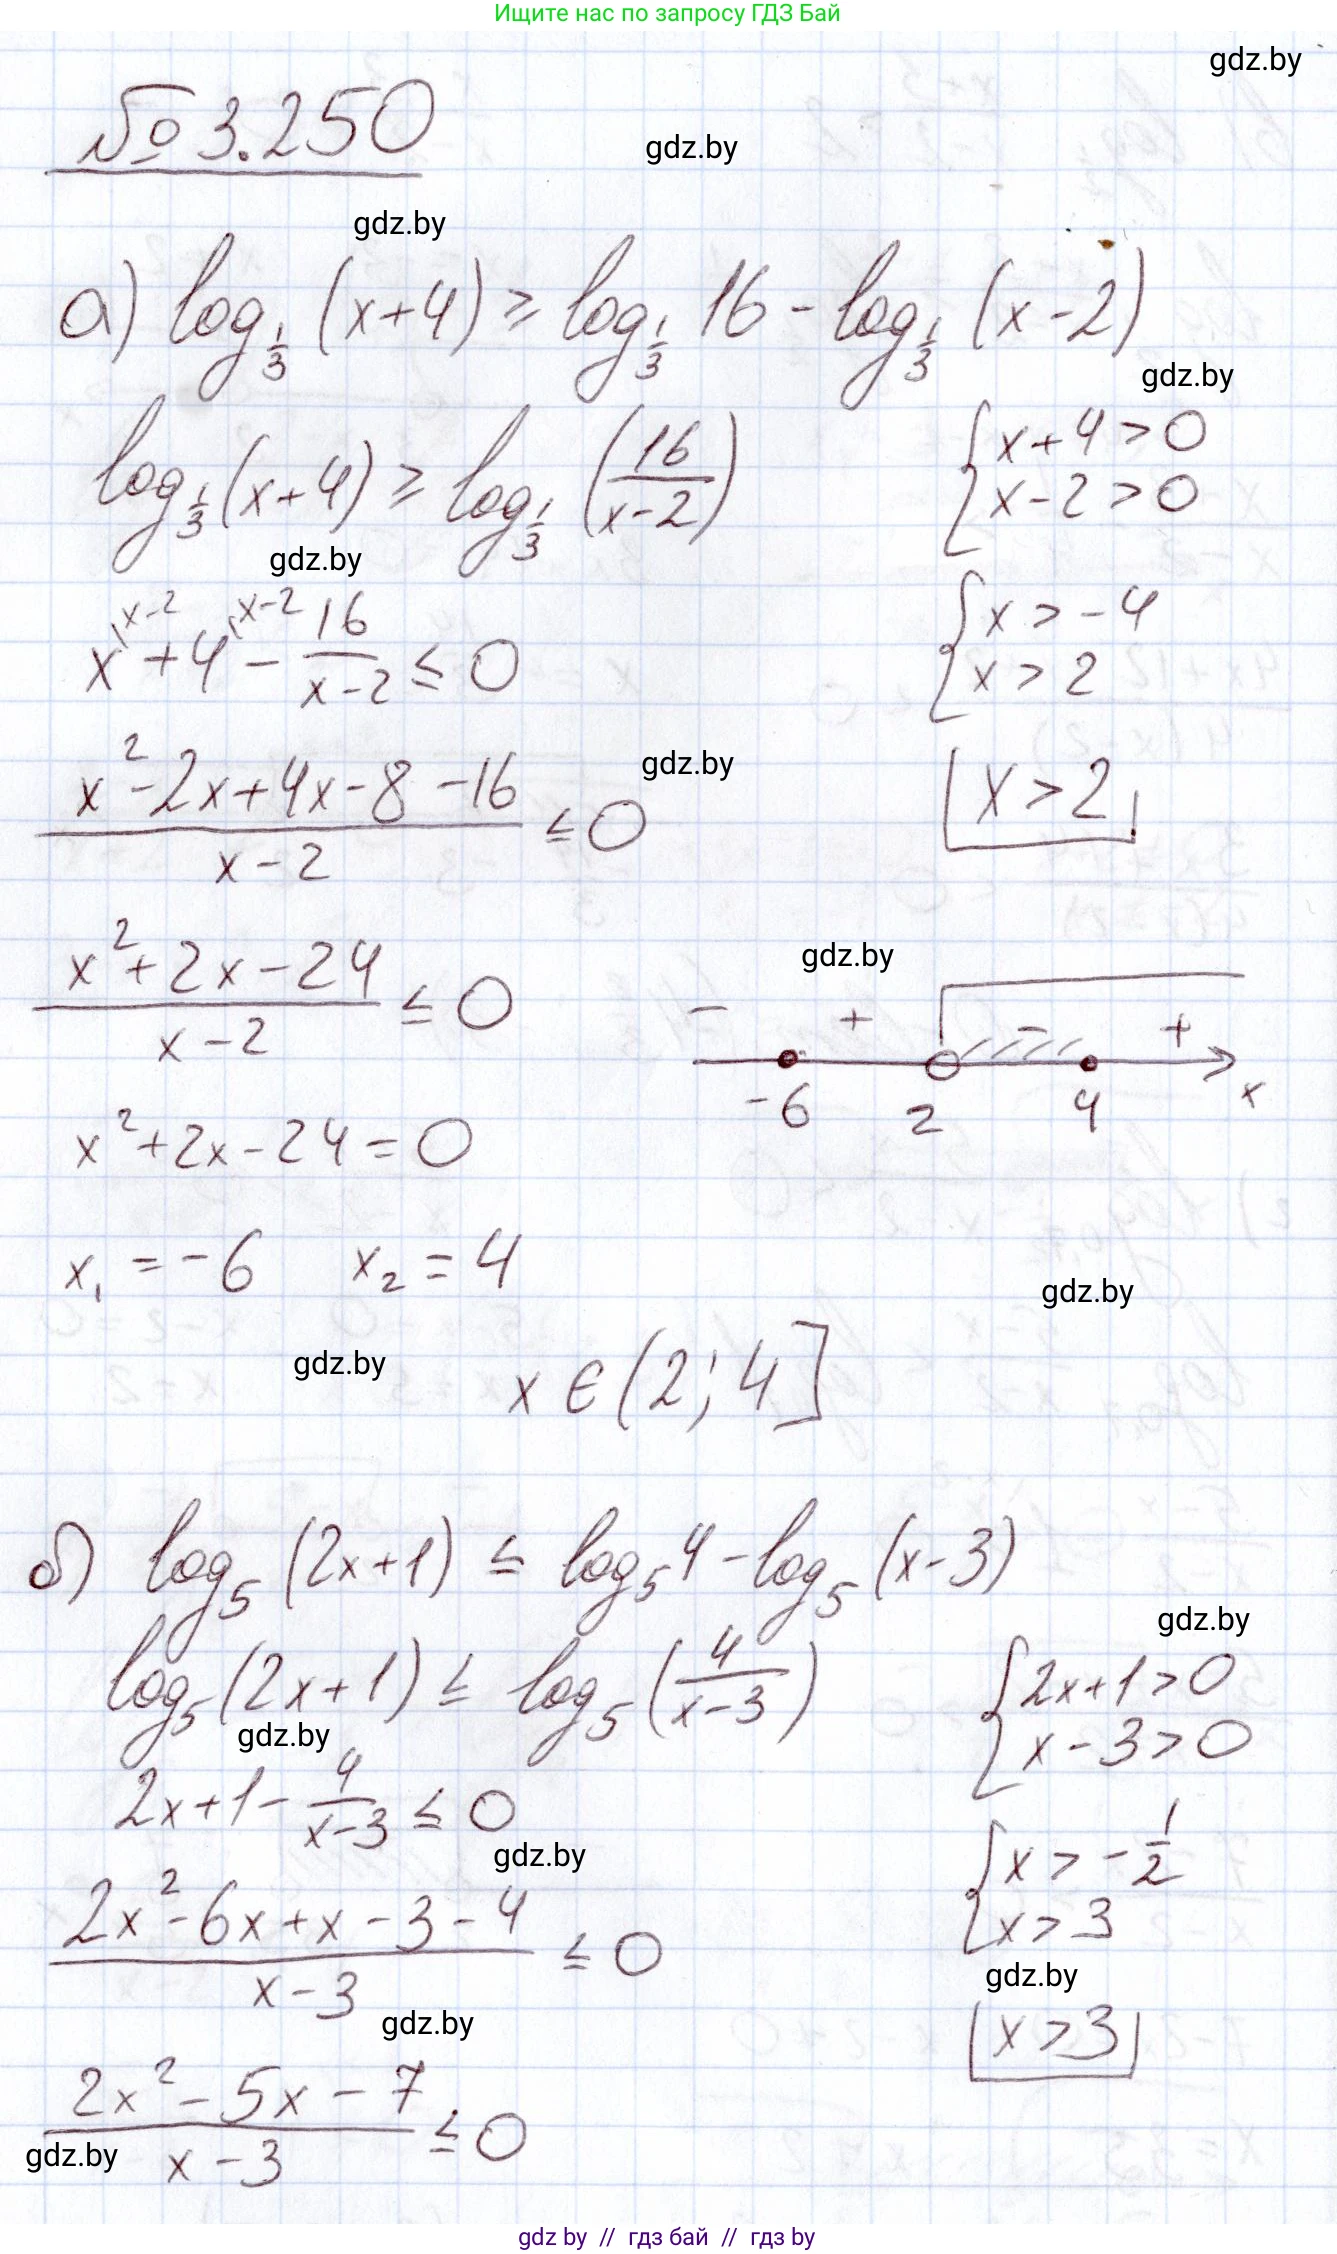 Ищите нас по запросу ГДЗ Бай
gdz.by
№ 3.250
gdz.by
gdz.by
а) log_{1/3} (x+4) ≥ log_{1/3} 16 - log_{1/3} (x-2)
gdz.by
log_{1/3} (x+4) ≥ log_{1/3} (16/(x-2))
{ x+4 > 0
x-2 > 0
gdz.by
x^{(x-2} + 4^{(x-2} - 16/(x-2) ≤ 0
{ x > -4
x > 2
(x²-2x+4x-8-16)/(x-2) ≤ 0
gdz.by
x > 2
(x²+2x-24)/(x-2) ≤ 0
gdz.by
- + - +
-6 2 4 x
x²+2x-24=0
x₁ = -6 x₂ = 4
gdz.by
gdz.by
x ∈ (2; 4]
б) log₅ (2x+1) ≤ log₅ 4 - log₅ (x-3)
gdz.by
log₅ (2x+1) ≤ log₅ (4/(x-3))
{ 2x+1>0
x-3>0
gdz.by
2x+1 - 4/(x-3) ≤ 0
{ x > -1/2
x > 3
gdz.by
(2x²-6x+x-3-4)/(x-3) ≤ 0
gdz.by
x > 3
gdz.by
(2x²-5x-7)/(x-3) ≤ 0
gdz.by
gdz by // гдз бай // гдз by